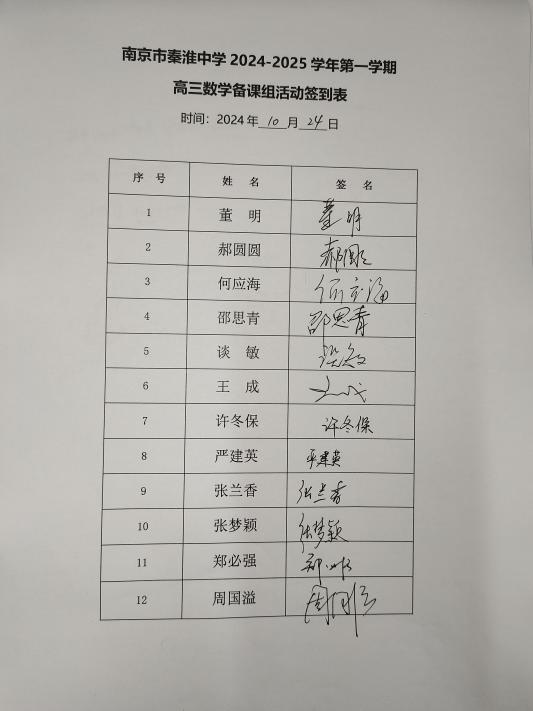 南京市秦淮中学 2024-2025 学年第一学期
高三数学备课组活动签到表
时间：2024 年 10 月 24 日
序 号 姓 名 签 名
1 董 明 董明
2 郝圆圆 郝圆圆
3 何应海 何应海
4 邵思青 邵思青
5 谈 敏 谈敏
6 王 成 王成
7 许冬保 许冬保
8 严建英 严建英
9 张兰香 张兰香
10 张梦颖 张梦颖
11 郑必强 郑必强
12 周国溢 周国溢